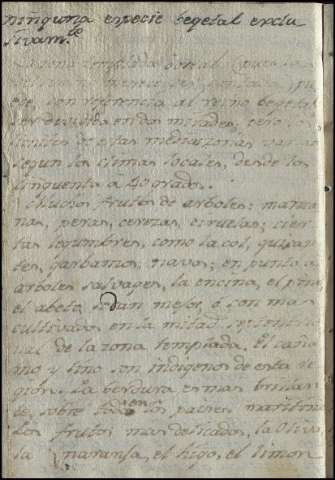 ninguna especie begetal exclu
sivam.te
La zona templada boreal (pues la
puede, con referencia al reino begetal
ser dividida en dos mitades, pero los
limites de estas medias zonas varian
segun los climas locales, desde los
cinquenta á 40 grados.
Muchos frutos de arboles: manza
nas, peras, cerezas, ciruelas; cier
tas legumbres, como la col, guisan
tes, garbanzos, navos; en punto a
arboles salvages, la encina, el pino,
el abeto, se dan mejor, ó son mas
cultivados en la mitad septentrio
nal de la zona templada. El caña
mo y lino son indigenos de esta re
gion. La verdura es mas brillan
te, sobre todo en los paises maritimos
Los frutos mas delicados, la oliva,
la naranja, el higo, el limon